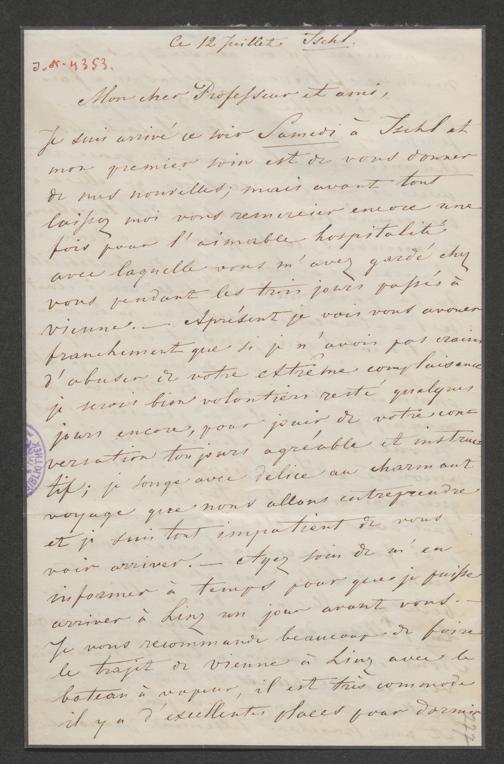 Ce 12 Juillet Ischl.
J.N. 4353.
Mon cher Professeur et ami,
Je suis arrivé ce soir Samedi à Ischl et
mon premier soin est de vous donner
de mes nouvelles; mais avant tout
laissez moi vous remercier encore une
fois pour l'aimable hospitalité
avec laquelle vous m'avez gardé chez
vous pendant les trois jours passés à
vienne. — Aprésent je vais vous avouer
franchement que si je n'avois pas craint
d'abuser de votre extrême complaisance
je serois bien volontiers resté quelques
jours encore, pour jouir de votre con
versation toujours agréable et instruc
tif; je songe avec délice au charmant
voyage que nous allons entreprendre
et je suis tout impatient de vous
voir arriver. — Ayez soin de m'en
informer à temps pour que je puisse
arriver à Linz un jour avant vous. —
Je vous recommande beaucoup de faire
le trajet de vienne à Linz avec le
bateau à vapeur, il est très commode
il y a d'excellentes places pour dormir